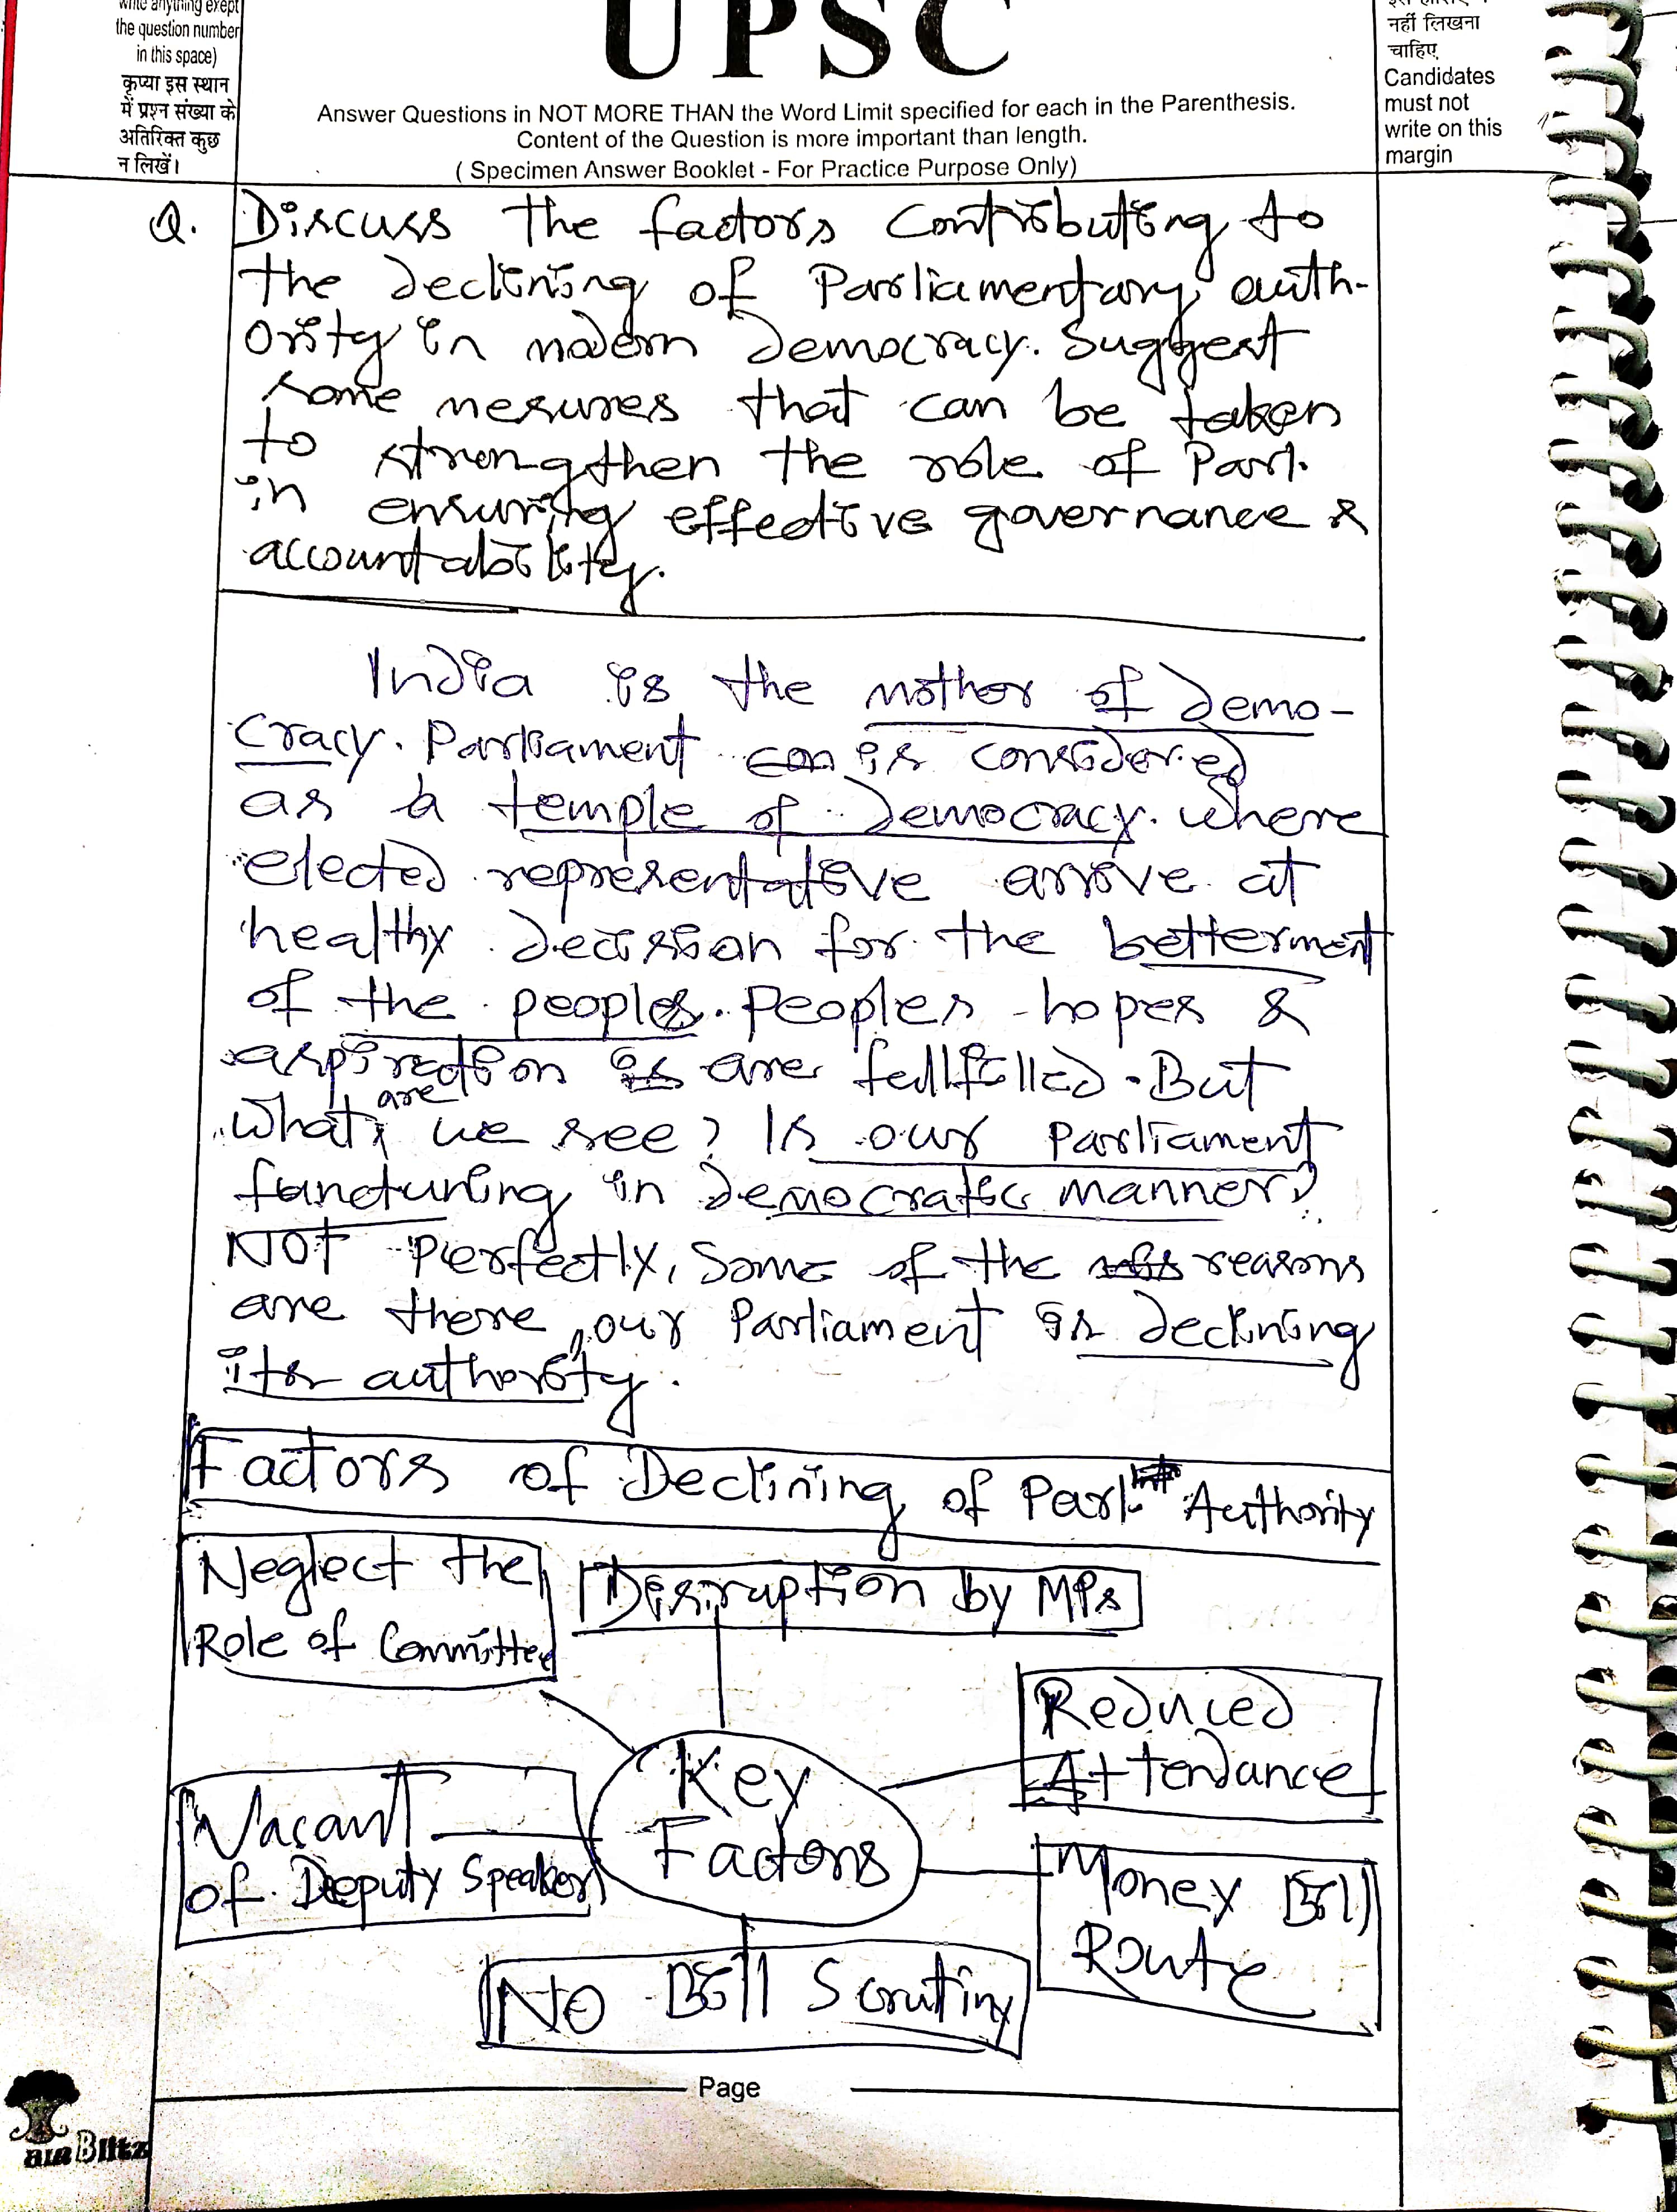 write anything exept
the question number
in this space)
कृप्या इस स्थान
में प्रश्न संख्या के
अतिरिक्त कुछ
न लिखें।
UPSC
Answer Questions in NOT MORE THAN the Word Limit specified for each in the Parenthesis.
Content of the Question is more important than length.
( Specimen Answer Booklet - For Practice Purpose Only)
नहीं लिखना
चाहिए
Candidates
must not
write on this
margin
Q. Discuss the factors contributing to
the declining of Parliamentary auth-
ority in modern democracy. Suggest
some mesures that can be taken
to strengthen the role of Parl.
in ensuring effective governance &
accountability.
India is the mother of demo-
cracy. Parliament is considered
as a temple of democracy. where
elected representative arrive at
healthy decision for the betterment
of the peoples. Peoples hopes &
aspiration is are fullfilled. But
what are we see? Is our parliament
functuning in democratic manner?
NOT perfectly, Some of the reasons
are there, our Parliament is declining
its authority.
Factors of Declining of Parl. Authority
Neglect the
Role of Committee
Disruption by MPs
Reduced
Attendance
Key
Factors
Vacant
of Deputy Speaker
Money Bill
Route
No Bill Scrutiny
Page
Blitz